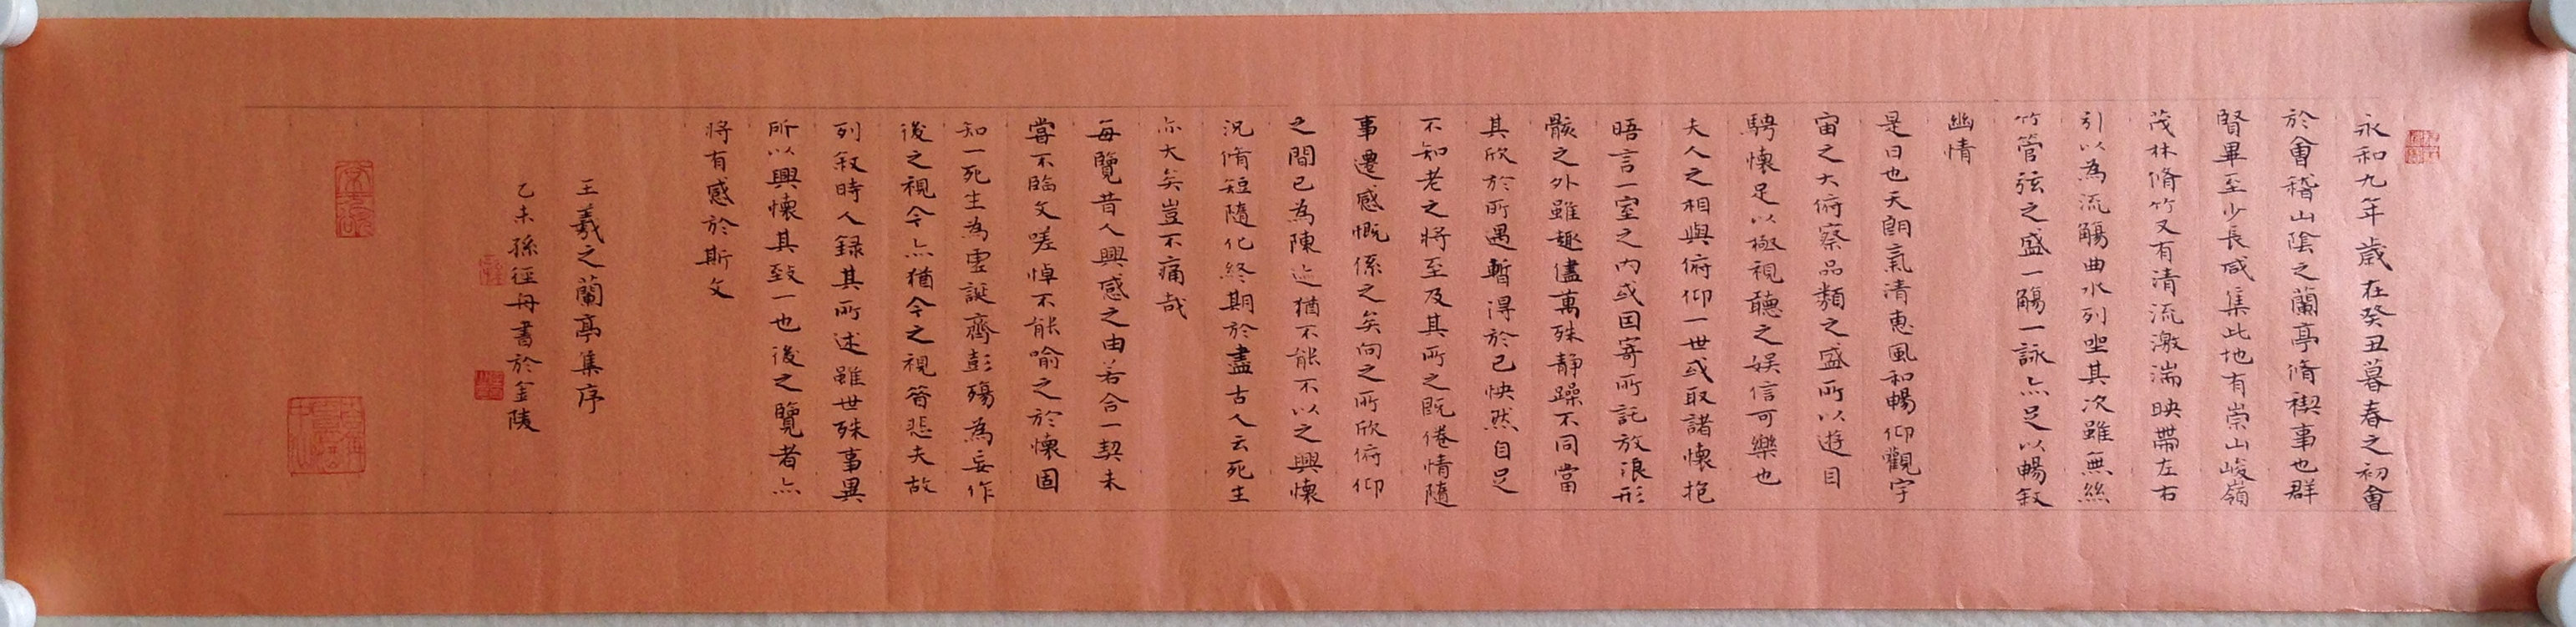 永和九年歲在癸丑暮春之初會
於會稽山陰之蘭亭脩禊事也群
賢畢至少長咸集此地有崇山峻嶺
茂林脩竹又有清流激湍映帶左右
引以為流觴曲水列坐其次雖無絲
竹管弦之盛一觴一詠亦足以暢敘
幽情
是日也天朗氣清惠風和暢仰觀宇
宙之大俯察品類之盛所以遊目
騁懷足以極視聽之娛信可樂也
夫人之相與俯仰一世或取諸懷抱
晤言一室之內或因寄所託放浪形
骸之外雖趣儘萬殊静躁不同當
其欣於所遇暫得於己怏然自足
不知老之將至及其所之既倦情隨
事遷感慨係之矣向之所欣俯仰
之間已為陳迹猶不能不以之興懷
況脩短隨化終期於盡古人云死生
亦大矣豈不痛哉
每覽昔人興感之由若合一契未
嘗不臨文嗟悼不能喻之於懷固
知一死生為虛誕齊彭殤為妄作
後之視今亦猶今之視昔悲夫故
列敘時人録其所述雖世殊事異
所以興懷其致一也後之覽者亦
將有感於斯文
王羲之蘭亭集序
乙未孫徑舟書於金陵